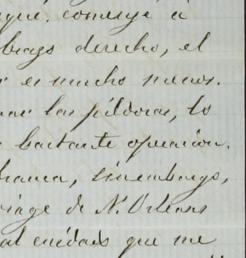 que. comense á
brazo derecho, el
r es mucho menos.
mar las píldoras, lo
bastante opresion.
hama, sinembargo,
viage de N. Orleans
al cuidado que me